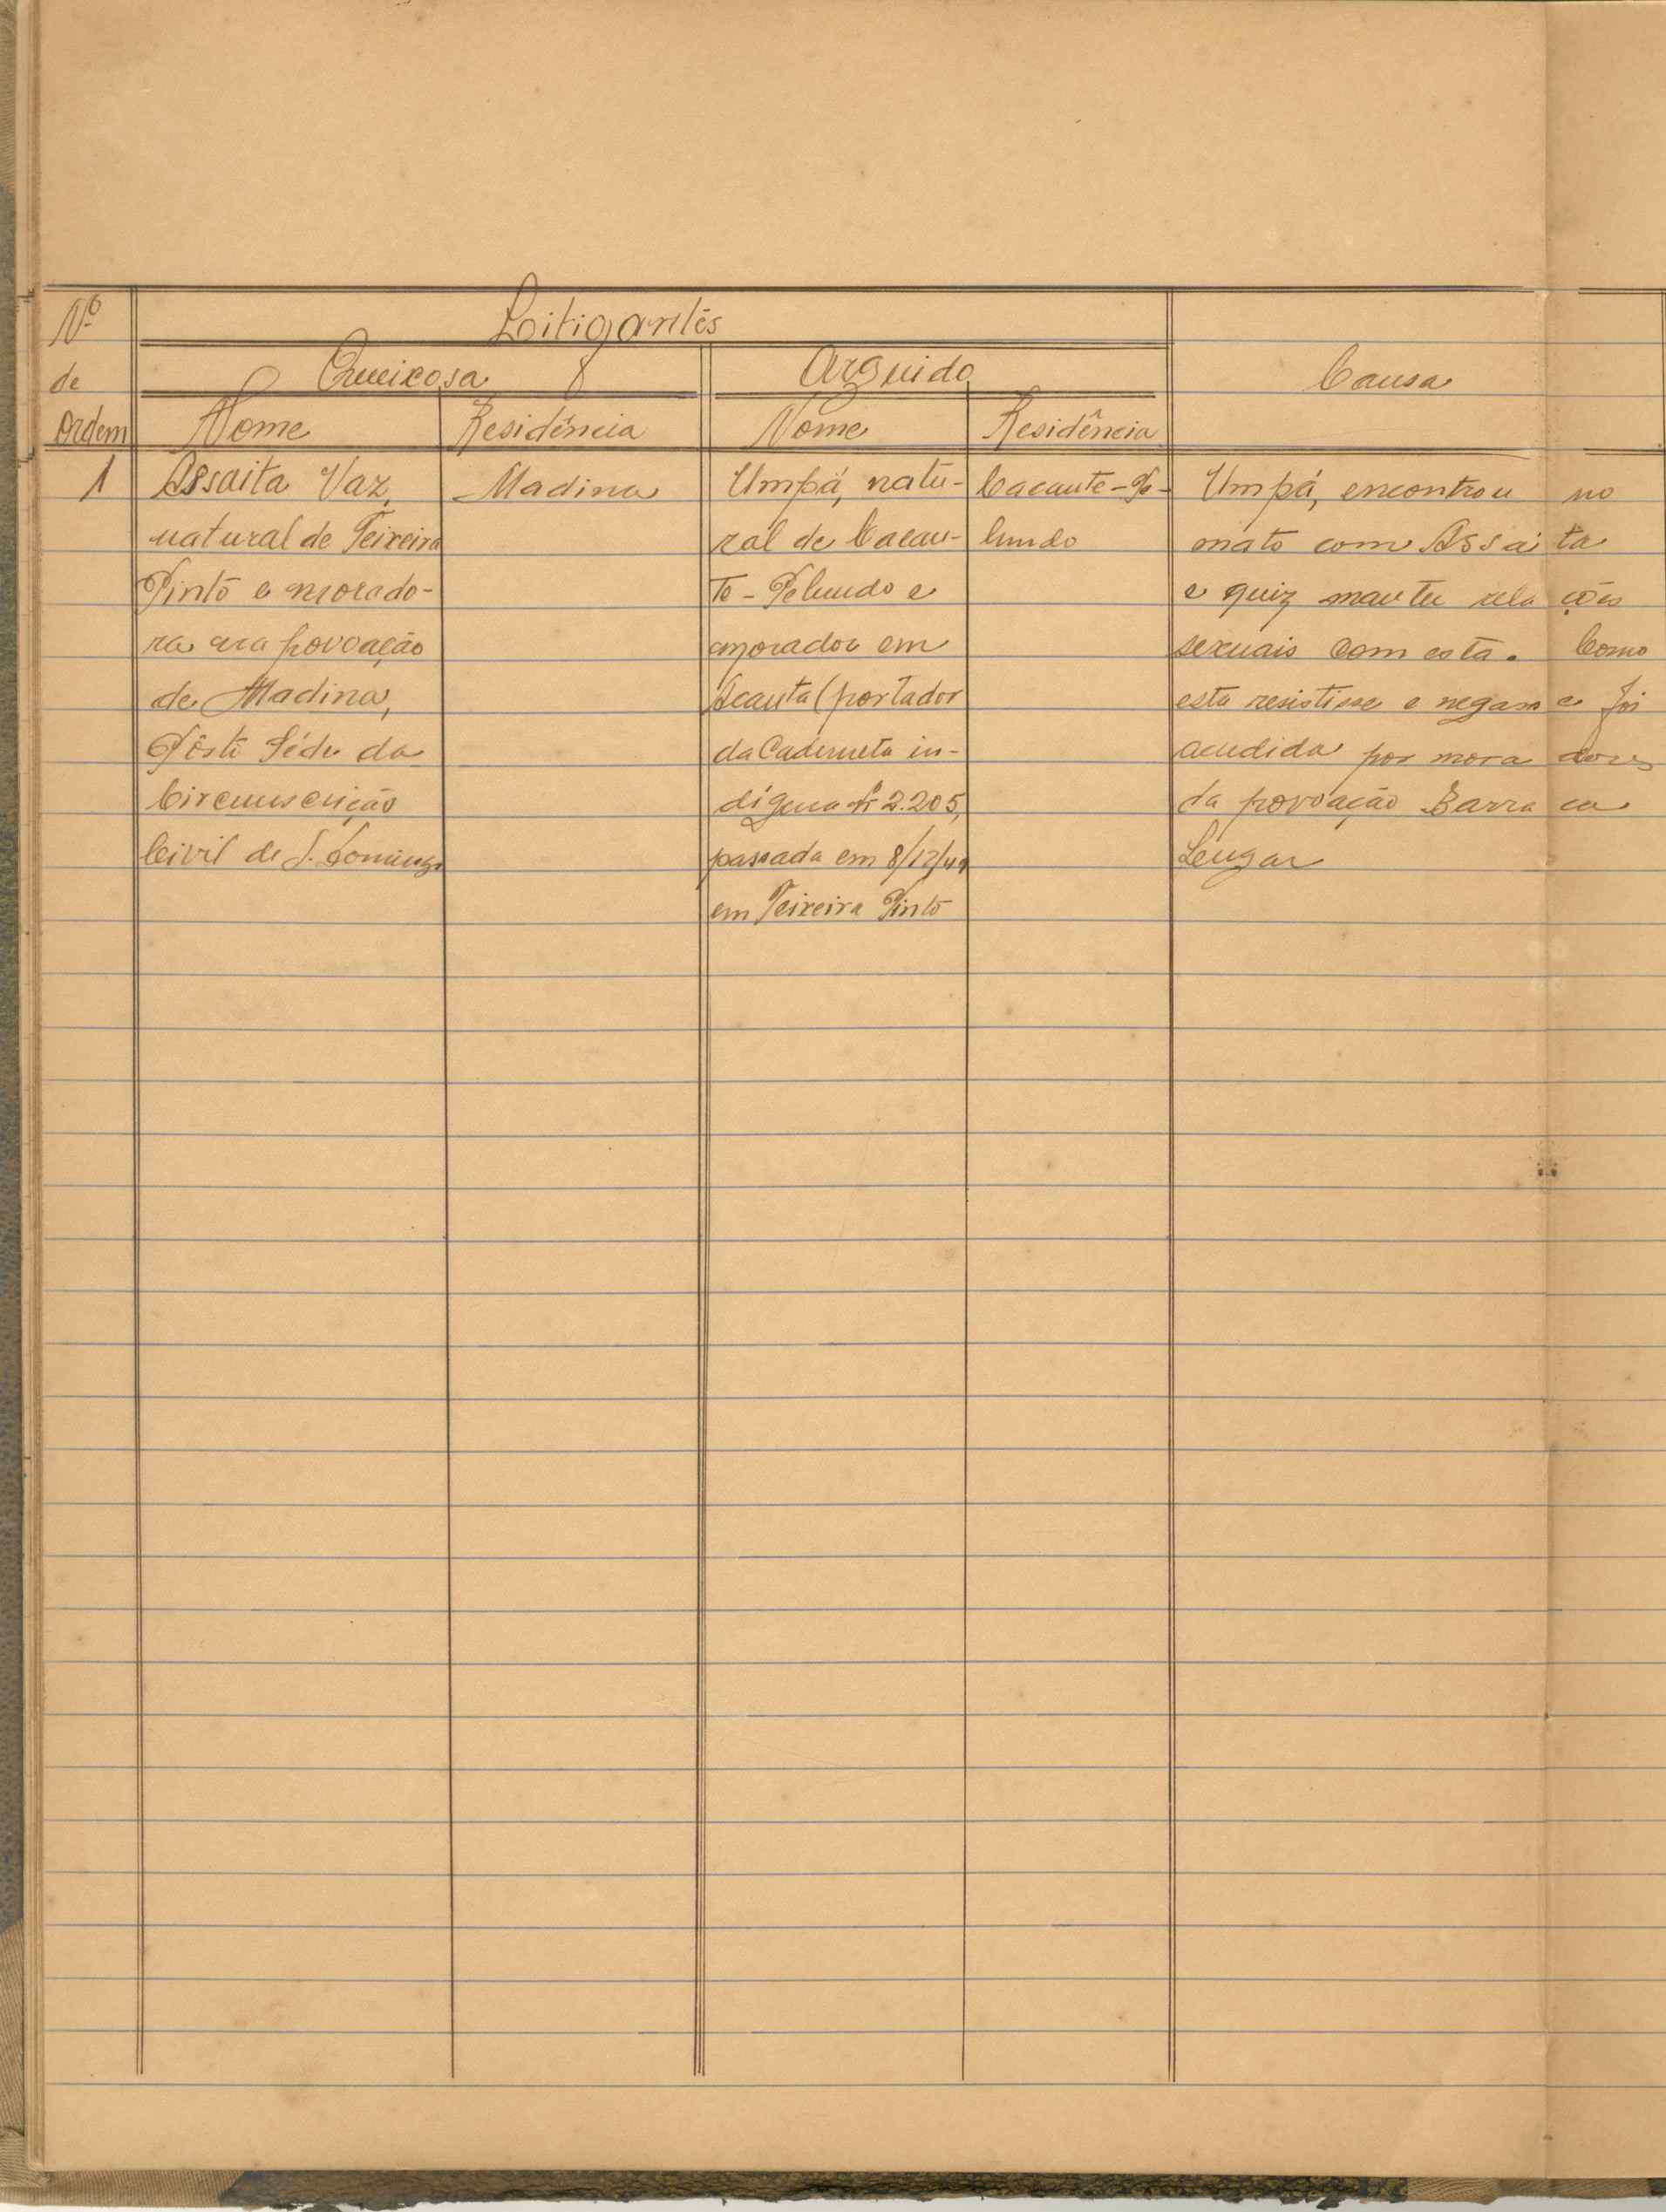 Nº
de
Ordem
Litigantes
Queixosa
Arguido
Causa
Nome
Residência
Nome
Residência
1
Assaita Vaz,
natural de Teixeira
Pinto e morado-
ra na povoação
de Madina,
Pôsto Séde da
Circunscrição
Civil de S. Domingos
Madina
Umpá, natu-
ral de Cacau-
to - Pelundo e
morador em
Acauta (portador
da Caderneta in-
dígena nº 2.205,
passada em 8/12/49
em Teixeira Pinto
Cacaute - Pe-
lundo
Umpá, encontrou no
mato com Assaita
e quiz manter relações
sexuais com esta. Como
esta resistisse e negasse foi
acudida por moradores
da povoação Barraca
Lengar